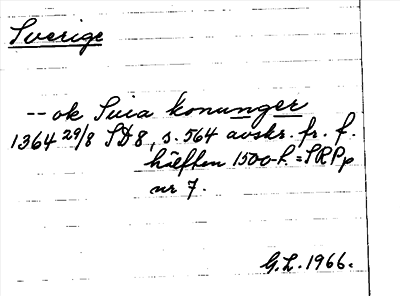 Sverige
-- ok Suia konunger
1364 29/8 SD8, s. 564 avskr. fr. f.
hälften 1500-t. = SRPp
nr 7.
G.L. 1966.